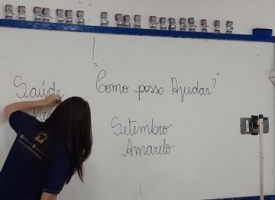 Saúde
Como posso Ajudar?"
Setembro
Amarelo